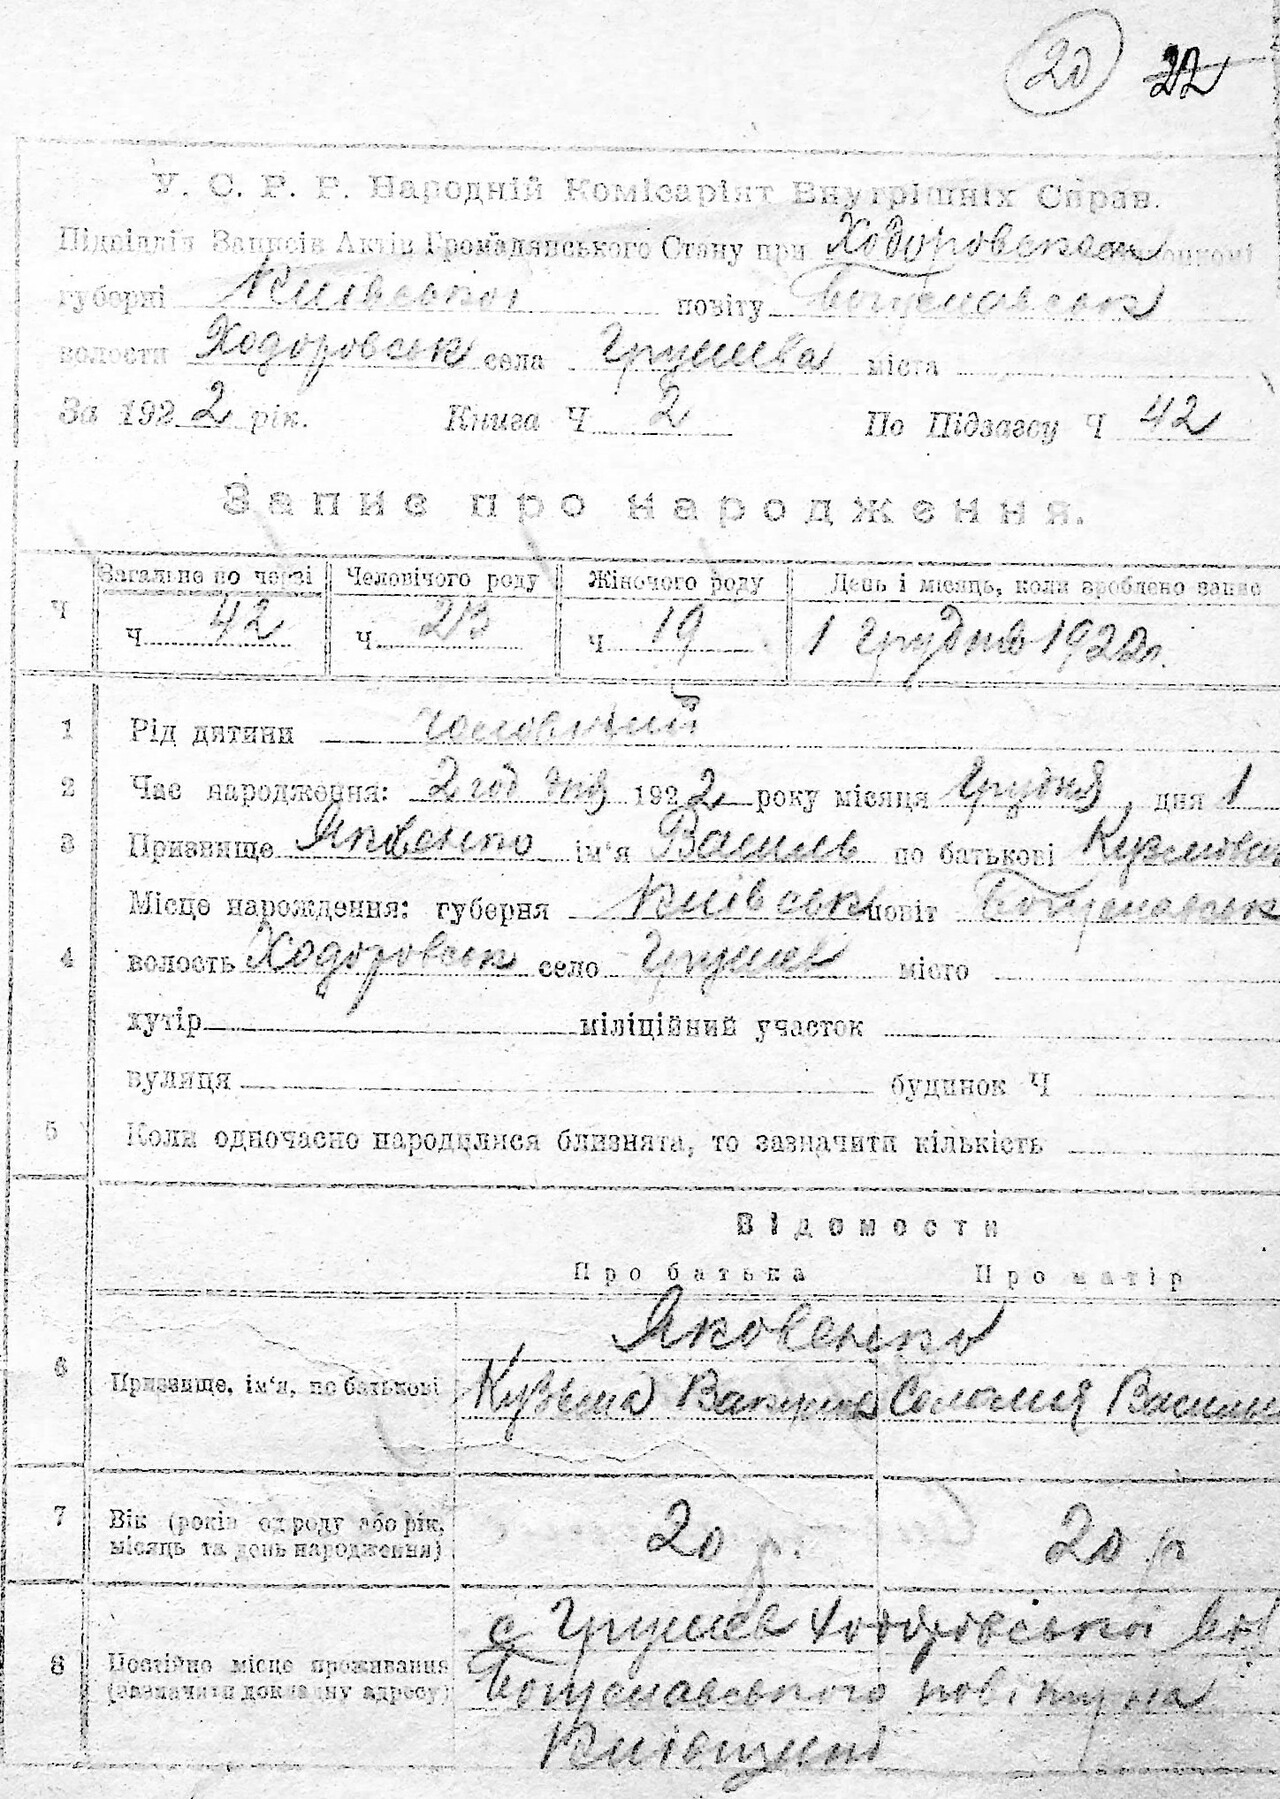 20 22
У. С. Р. Р. Народній Комісаріят Внутрішніх Справ.
Підвідділ Записів Актів Громадянського Стану при Ходоровском
губерні Київської повіту Богуславськ
волости Ходоровськ села Грушева міста
За 1922 рік. Книга Ч 2 По Підзагсу Ч 42
Запис про народження.
Загальне по черзі Человічого роду Жіночого роду День і місяць, коли зроблено запис
Ч Ч 42 Ч 23 Ч 19 1 Грудня 1922 г.
1 Рід дитини Человічий
2 Час народження: 2 год дня 1922 року місяця Грудня дня 1
3 Призвище Яковенко ім'я Василь по батькові
Місце народження: губерня Київськ повіт Богуславськ
4 волость Ходоровськ село Грушев місто
хутір міліційний участок
вулиця будинок Ч
5 Коли одночасно народилися близнята, то зазначити кількість
Відомости
Про батька Про матір
Яковенко
6 Призвище, ім'я, по батькові Кузьма Соломия
7 Вік (років од роду або рік, 20 р. 20 р
місяць та день народження)
с Грушев Ходорівської вол
8 Постійне місце проживання Богуславського повіту на
(зазначити докладну адресу)
Київщині